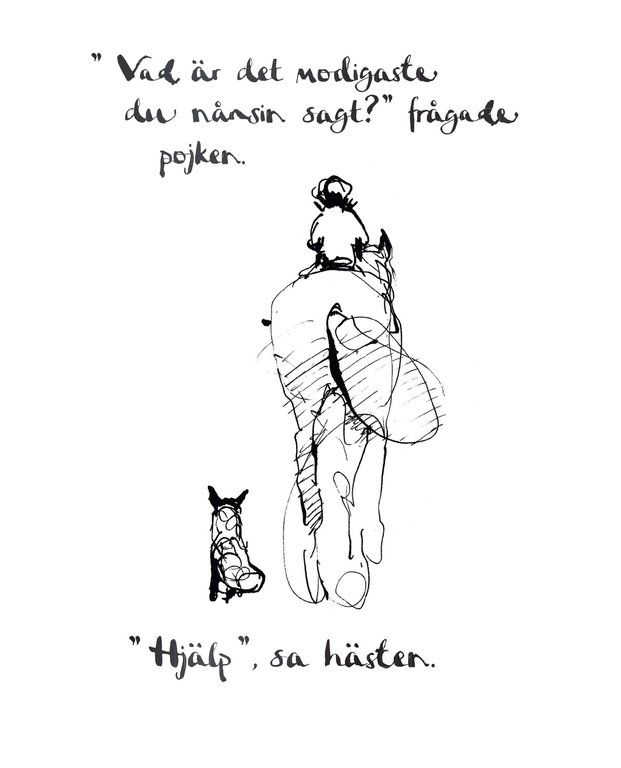 ”Vad är det modigaste
du nånsin sagt?” frågade
pojken.
”Hjälp”, sa hästen.